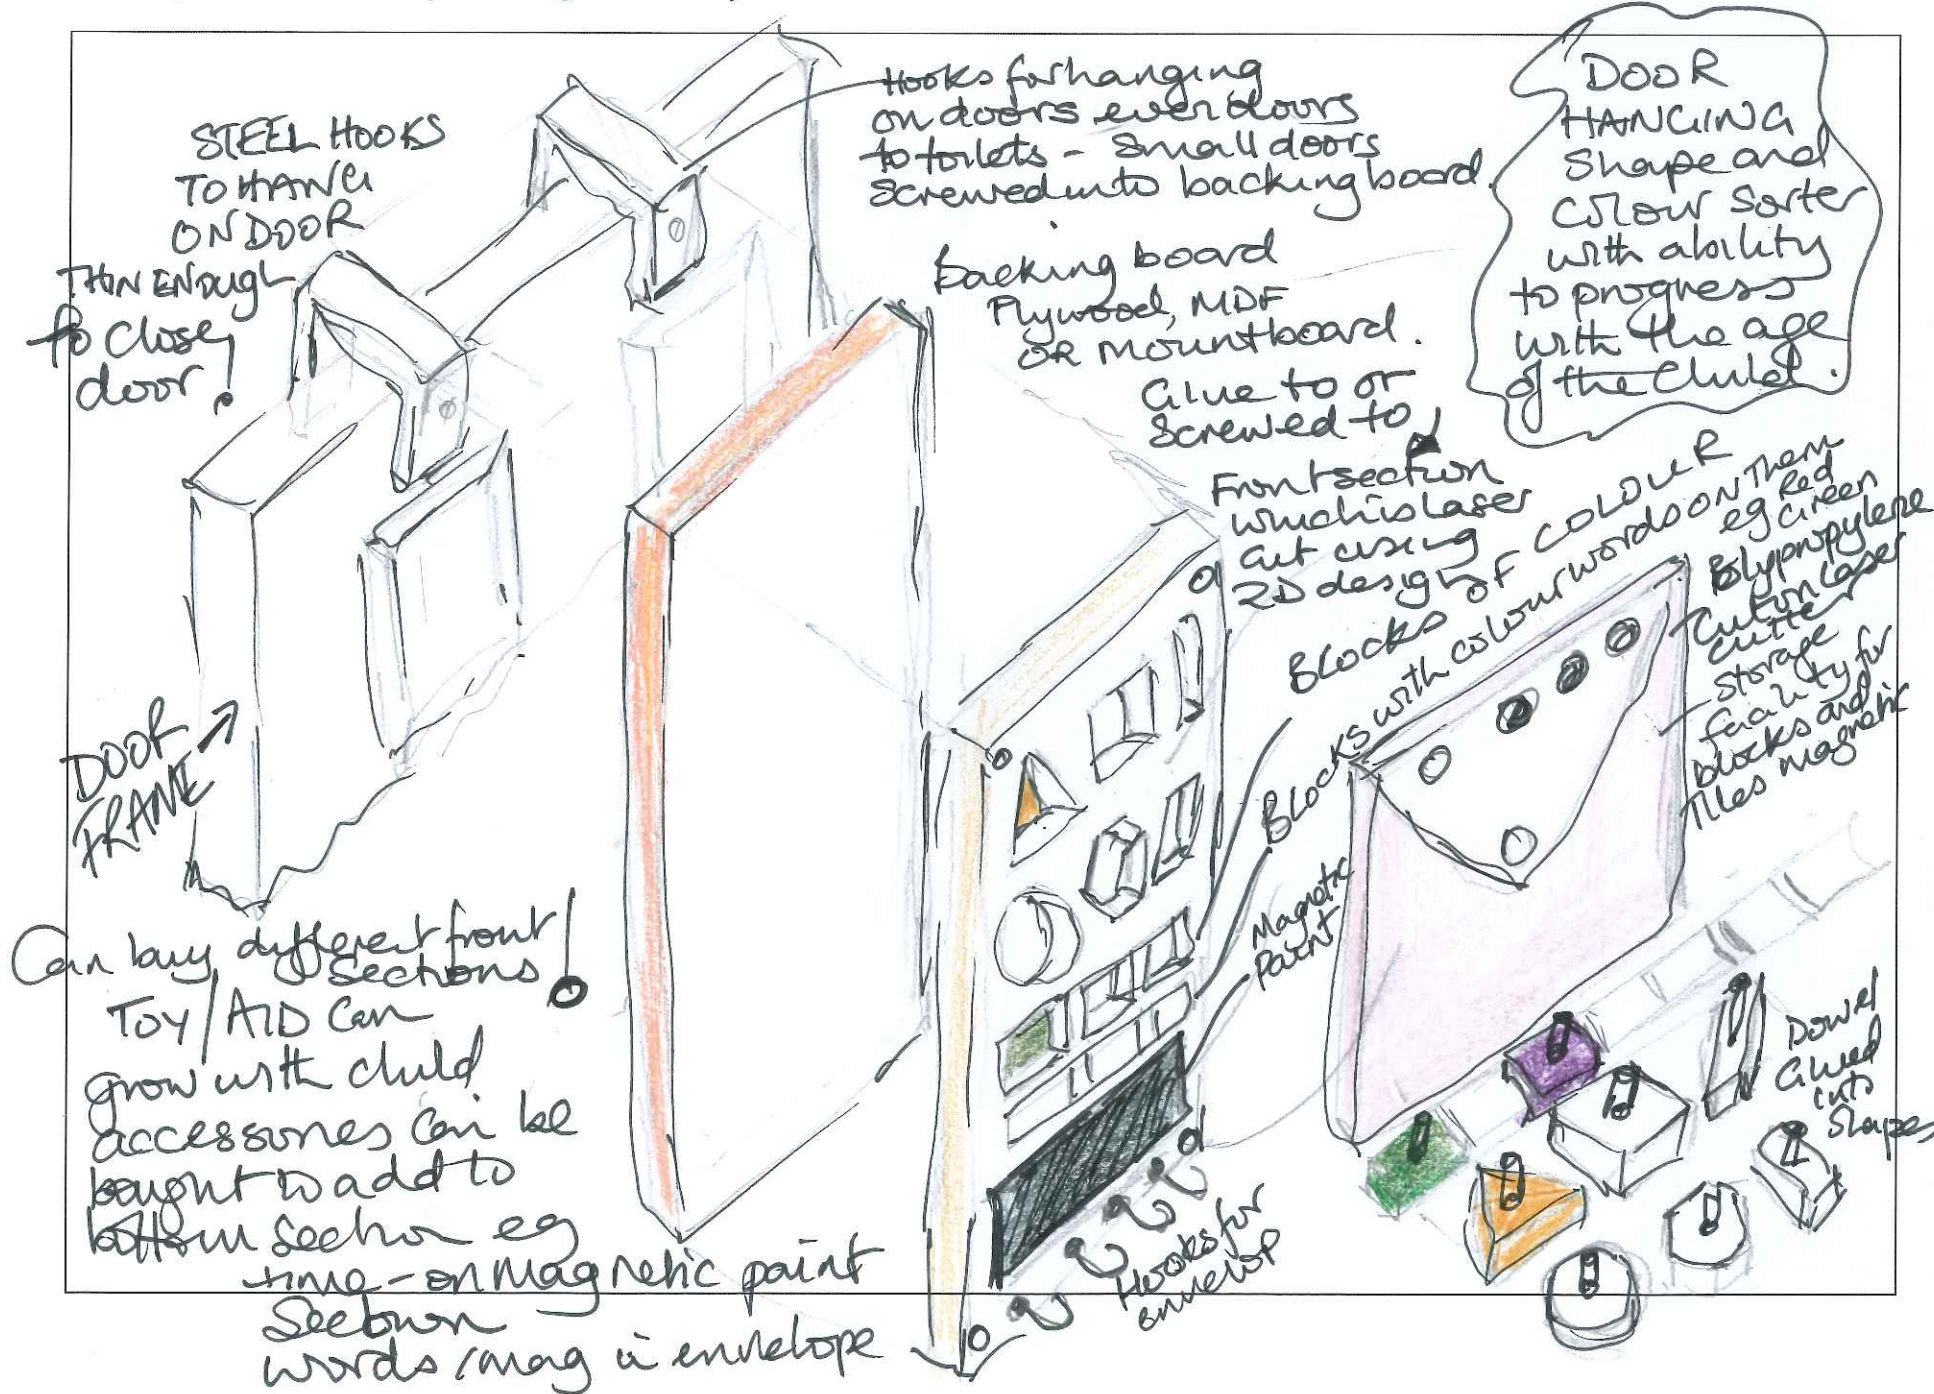 STEEL HOOKS
TO HANG
ON DOOR
THIN ENOUGH
to close
door!
Hooks for hanging
on doors even doors
to toilets - Small doors
screwed into backing board.
DOOR
HANGING
Shape and
colour sorter
with ability
to progress
with the age
of the child.
backing board
Plywood, MDF
OR mountboard.
Glue to or
Screwed to
Front section
which is laser
cut using
2D design
BLOCKS OF COLOUR
BLOCKS with colour words on them
eg Red
eg Green
Polypropylene
Cut on laser
cutter
storage
facility for
blocks and
Tiles magnetic
DOOR
FRAME
Magnetic
paint
Dowel
Glued
into
Shapes
Hooks for
envelop
Can buy different front
sections!
TOY/AID can
grow with child
accessories can be
bought to add to
bottom section eg
time - on magnetic paint
Section
words/mag in envelope